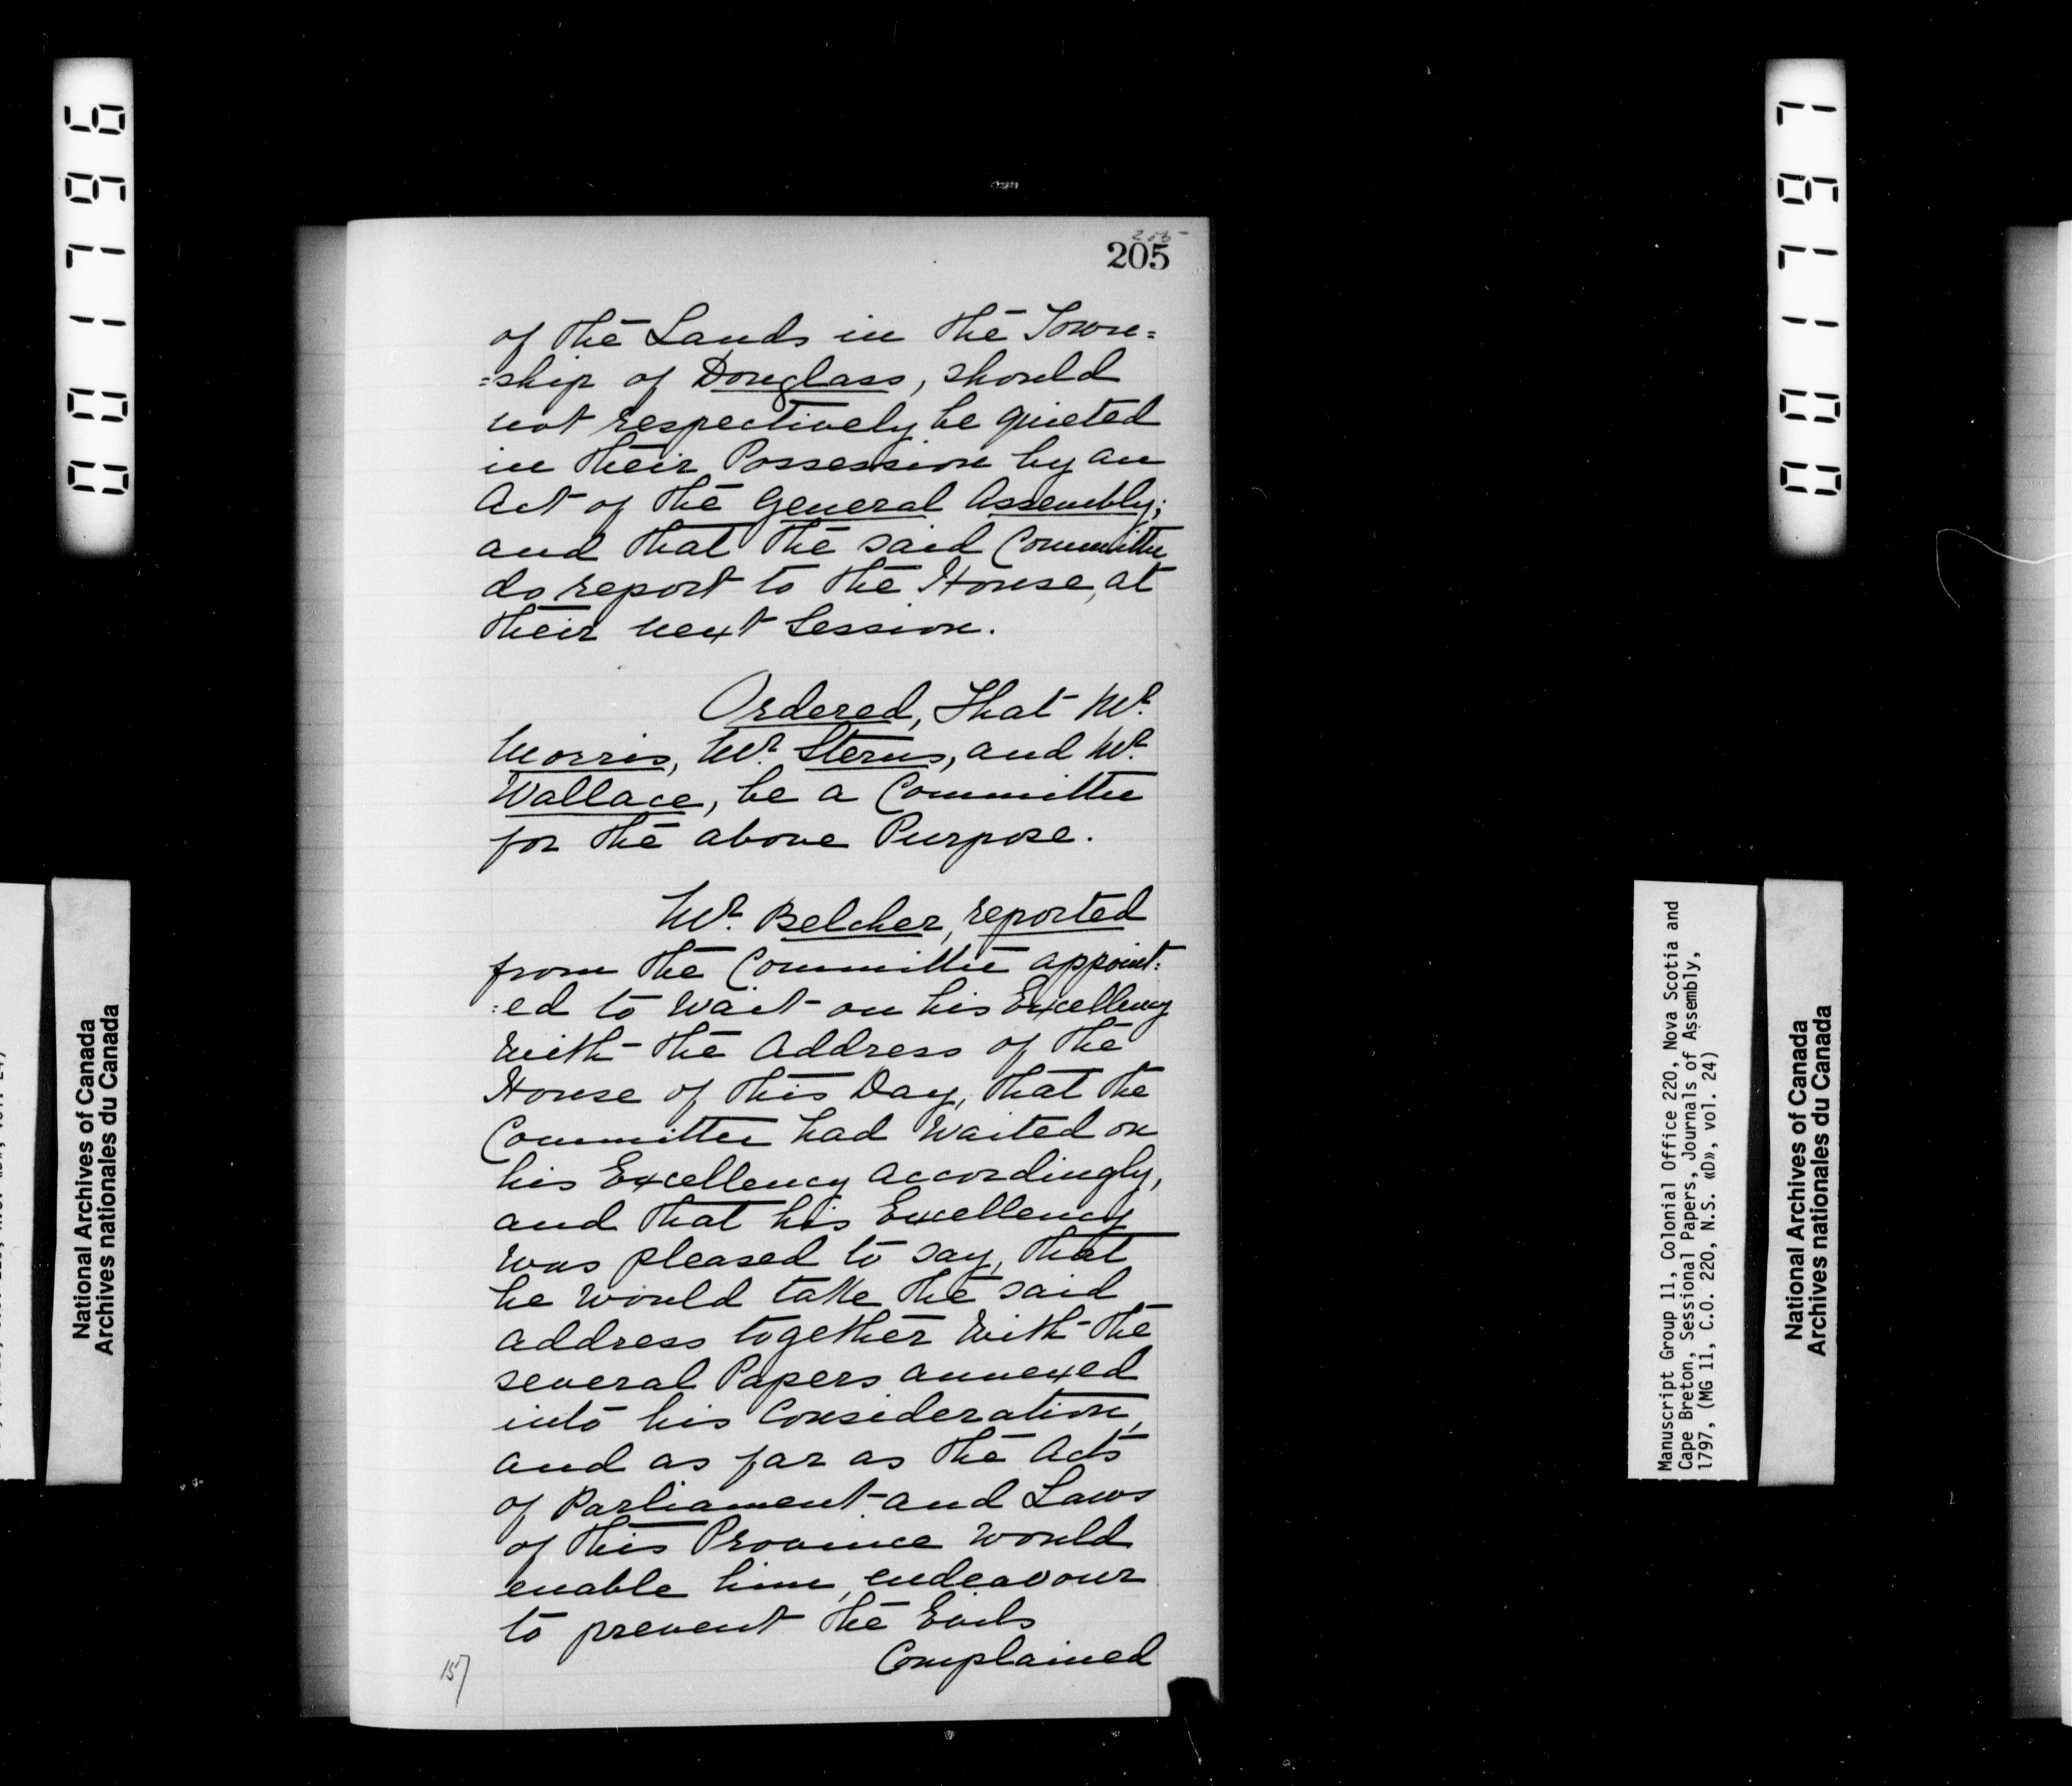 001796
205
205
of the Lands in the Town=
=ship of Douglass, should
not respectively be quieted
in their Possession by an
Act of the General Assembly;
and that the said Committee
do report to the House, at
their next Session.
Ordered, That Mr.
Morris, Mr. Sterns, and Mr.
Wallace, be a Committee
for the above Purpose.
Mr. Belcher, reported
from the Committee appoint=
=ed to Wait on his Excellency
with the Address of the
House of this Day, that the
Committee had Waited on
his Excellency accordingly,
and that his Excellency
was pleased to say, that
he would take the said
address together with the
several Papers annexed
into his Consideration,
and as far as the Acts
of Parliament and Laws
of this Province would
enable him, endeavour
to prevent the Evils
Complained
157
National Archives of Canada
Archives nationales du Canada
001797
Manuscript Group 11, Colonial Office 220, Nova Scotia and
Cape Breton, Sessional Papers, Journals of Assembly,
1797, (MG 11, C.O. 220, N.S. «D», vol. 24)
National Archives of Canada
Archives nationales du Canada